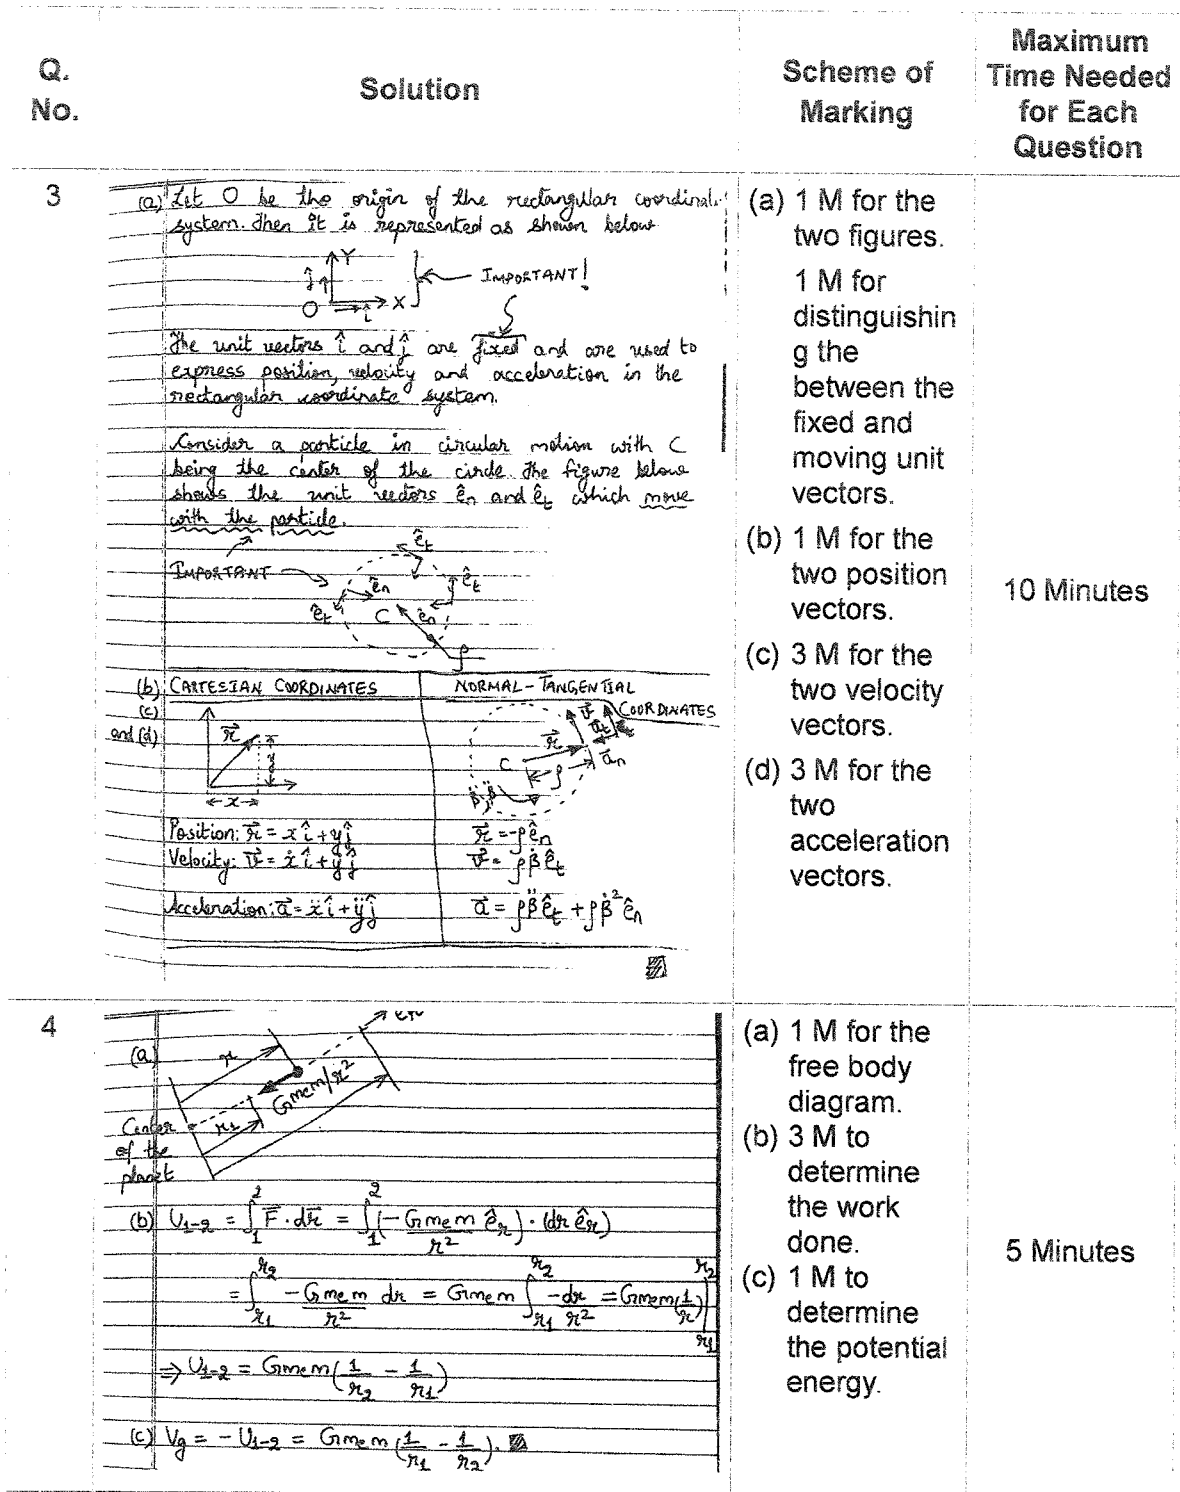 Q.
No.
Solution
Scheme of
Marking
Maximum
Time Needed
for Each
Question
3
(a) Let O be the origin of the rectangular coordinate
system. Then it is represented as shown below
Y
ĵ
O
î
X
IMPORTANT!
The unit vectors î and ĵ are fixed and are used to
express position, velocity and acceleration in the
rectangular coordinate system.
Consider a particle in circular motion with C
being the center of the circle. The figure below
shows the unit vectors ên and êt which move
with the particle.
IMPORTANT
êt
êt
ên
êt
C
ên
ρ
(b)
(c)
and (d)
CARTESIAN COORDINATES
NORMAL-TANGENTIAL
COORDINATES
r⃗
y
x
v⃗
a⃗t
r⃗
a⃗n
C
ρ
β̈, β̇
Position: r⃗ = x î + y ĵ
r⃗ = -ρ ên
Velocity: v⃗ = ẋ î + ẏ ĵ
v⃗ = ρβ̇ êt
Acceleration: a⃗ = ẍ î + ÿ ĵ
a⃗ = ρβ̈ êt + ρβ̇² ên
(a) 1 M for the
two figures.
1 M for
distinguishin
g the
between the
fixed and
moving unit
vectors.
(b) 1 M for the
two position
vectors.
(c) 3 M for the
two velocity
vectors.
(d) 3 M for the
two
acceleration
vectors.
10 Minutes
4
(a)
r
Gmem/r²
r1
Center
of the
planet
(b) U1-2 = ∫₁² F̄ · dr̄ = ∫₁² (- Gmem/r² êr) · (dr êr)
= ∫r1^r2 - Gmem/r² dr = Gmem ∫r1^r2 -dr/r² = Gmem(1/r)|r1^r2
⇒ U1-2 = Gmem(1/r2 - 1/r1)
(c) Vg = - U1-2 = Gmem(1/r1 - 1/r2).
(a) 1 M for the
free body
diagram.
(b) 3 M to
determine
the work
done.
(c) 1 M to
determine
the potential
energy.
5 Minutes